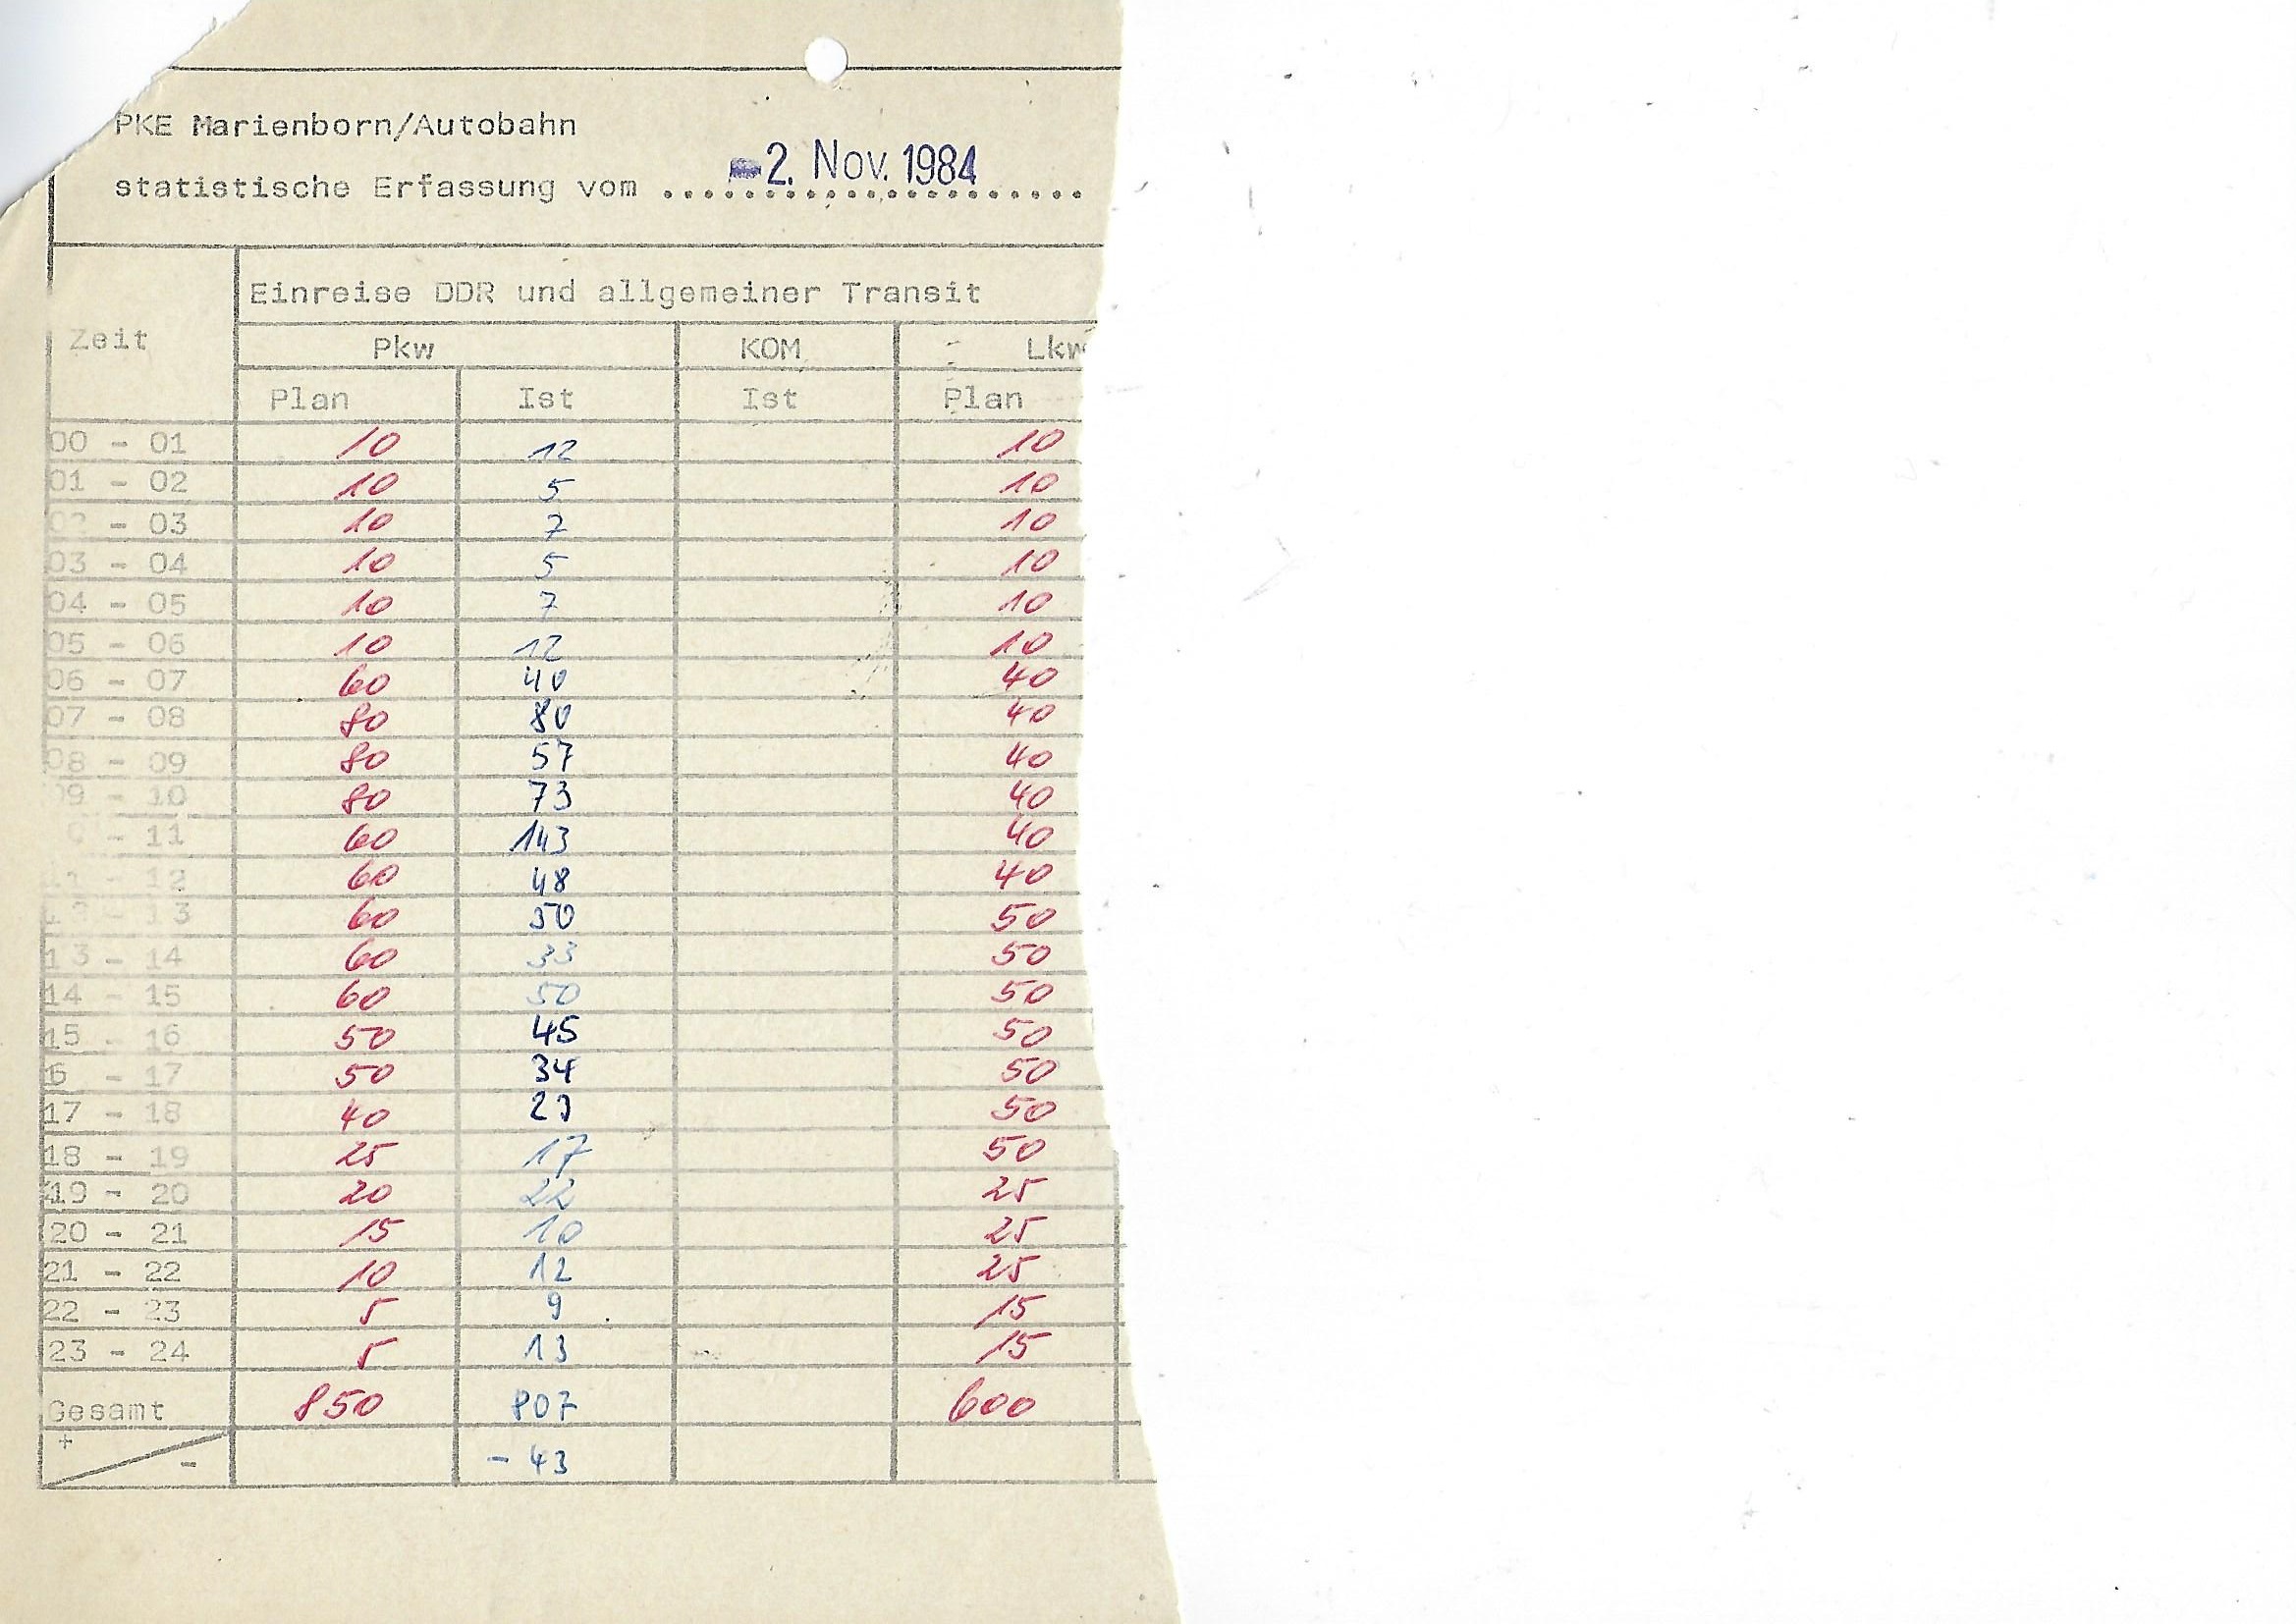 PKE Marienborn/Autobahn
statistische Erfassung vom ..................... -2. Nov. 1984
Einreise DDR und allgemeiner Transit
Zeit
Pkw KOM Lkw
Plan Ist Ist Plan
00 - 01 10 12 10
01 - 02 10 5 10
02 - 03 10 7 10
03 - 04 10 5 10
04 - 05 10 7 10
05 - 06 10 12 10
06 - 07 60 40 40
07 - 08 80 80 40
08 - 09 80 57 40
09 - 10 80 73 40
- 11 60 143 40
11 - 12 60 48 40
12 - 13 60 50 50
13 - 14 60 33 50
14 - 15 60 50 50
15 - 16 50 45 50
6 - 17 50 34 50
17 - 18 40 23 50
18 - 19 25 17 50
19 - 20 20 22 25
20 - 21 15 10 25
21 - 22 10 12 25
22 - 23 5 9 15
23 - 24 5 13 15
Gesamt 850 807 600
+ - - 43